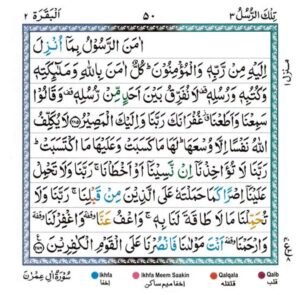 تِلْكَ الرُّسُلُ ٣ ٥٠ اَلْبَقَرَة ٢
اٰمَنَ الرَّسُوْلُ بِمَآ اُنْزِلَ
اِلَيْهِ مِنْ رَّبِّهٖ وَالْمُؤْمِنُوْنَ ؕ كُلٌّ اٰمَنَ بِاللّٰهِ وَمَلٰٓئِكَتِهٖ
وَكُتُبِهٖ وَرُسُلِهٖ ۫ لَا نُفَرِّقُ بَيْنَ اَحَدٍ مِّنْ رُّسُلِهٖ ۫ وَقَالُوْا
سَمِعْنَا وَاَطَعْنَا ۫ غُفْرَانَكَ رَبَّنَا وَاِلَيْكَ الْمَصِيْرُ ﴿٢٨٥﴾ لَا يُكَلِّفُ
اللّٰهُ نَفْسًا اِلَّا وُسْعَهَا ؕ لَهَا مَا كَسَبَتْ وَعَلَيْهَا مَا اكْتَسَبَتْ ؕ
رَبَّنَا لَا تُؤَاخِذْنَآ اِنْ نَّسِيْنَآ اَوْ اَخْطَاْنَا ۚ رَبَّنَا وَلَا تَحْمِلْ
عَلَيْنَآ اِصْرًا كَمَا حَمَلْتَهٗ عَلَى الَّذِيْنَ مِنْ قَبْلِنَا ۚ رَبَّنَا وَلَا
تُحَمِّلْنَا مَا لَا طَاقَةَ لَنَا بِهٖ ۚ وَاعْفُ عَنَّا ۥ وَاغْفِرْ لَنَا ۥ
وَارْحَمْنَا ۥ اَنْتَ مَوْلٰىنَا فَانْصُرْنَا عَلَى الْقَوْمِ الْكٰفِرِيْنَ ﴿٢٨٦﴾
Ikhfa اخفا Ikhfa Meem Saakin اخفا میم ساکن Qalqala قلقله Qalb قلب
سُوْرَةُ اٰلِ عِمْرٰنَ